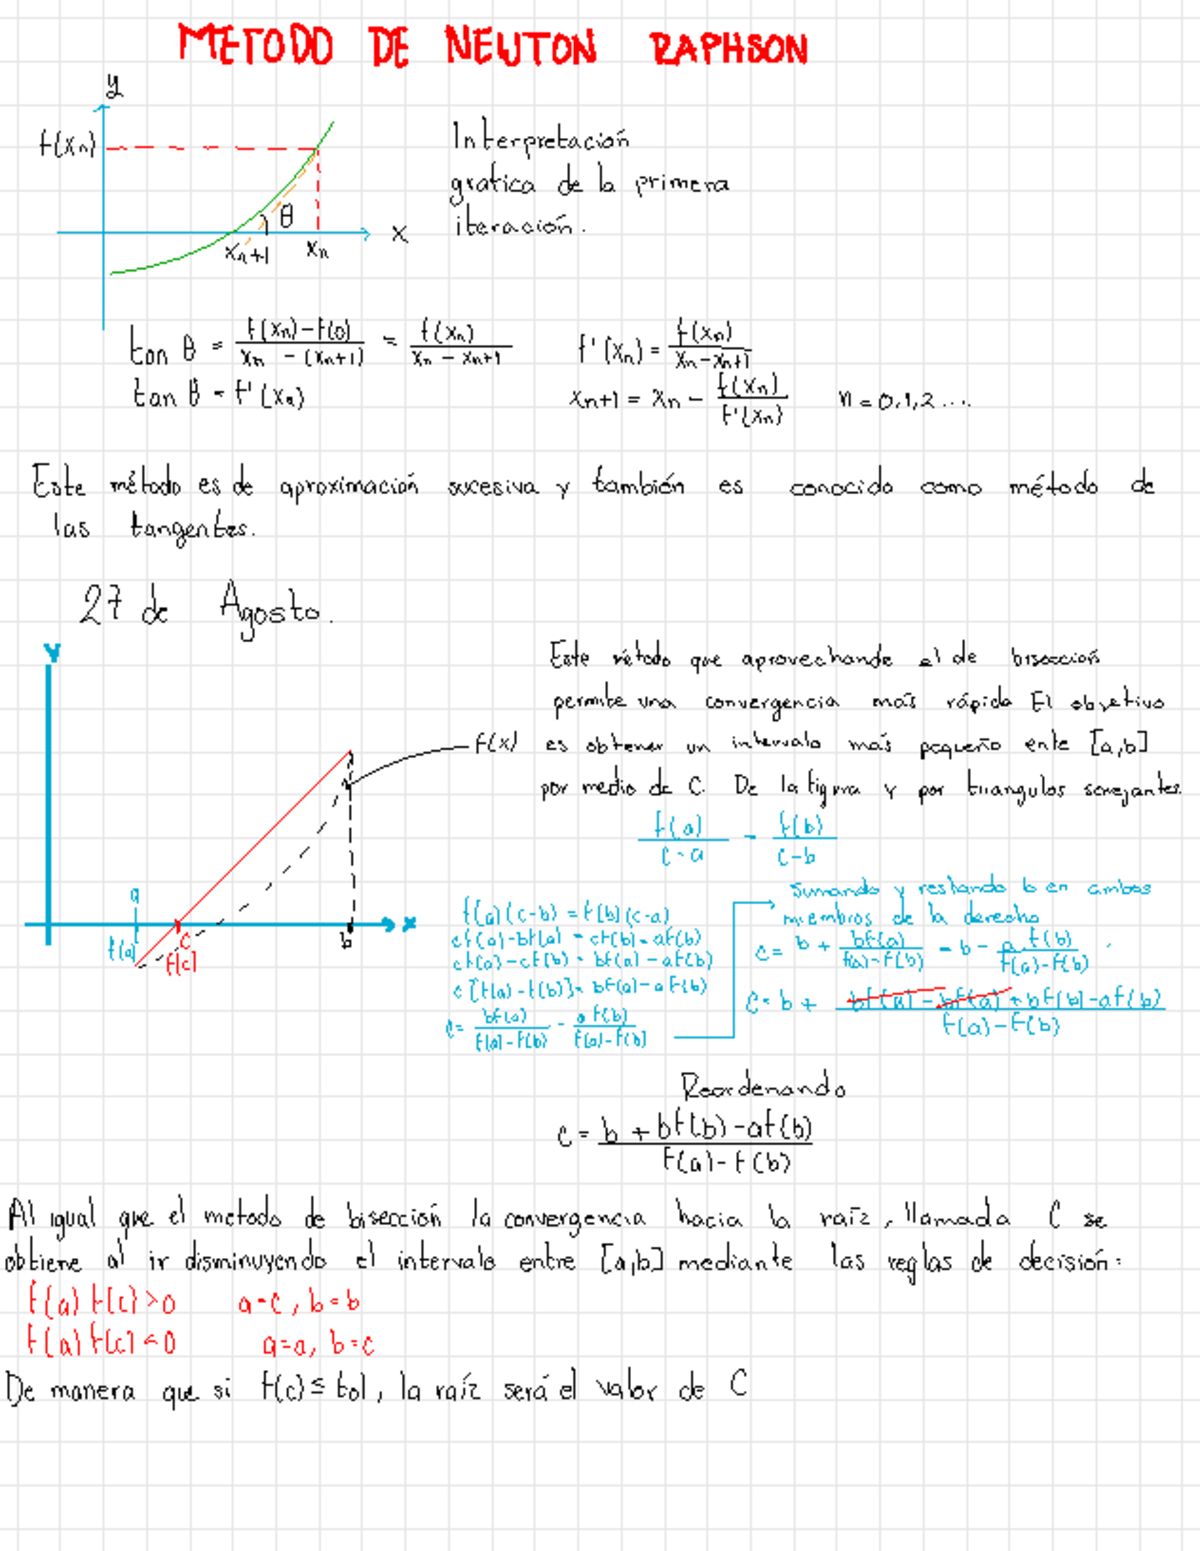 METODO DE NEWTON RAPHSON
y
f(xn)
θ
x
xn+1 xn
Interpretación
grafica de la primera
iteración.
tan θ = (f(xn)-f(0))/(xn - (xn+1)) = f(xn)/(xn - xn+1)
f'(xn) = f(xn)/(xn-xn+1)
tan θ = f'(xn)
xn+1 = xn - f(xn)/f'(xn) n = 0,1,2 ...
Este método es de aproximación sucesiva y también es conocido como método de
las tangentes.
27 de Agosto.
Y
f(x)
a
f(a)
c
f(c)
b
x
Este método que aprovechando el de bisección
permite una convergencia más rápida El objetivo
es obtener un intervalo más pequeño ente [a,b]
por medio de C. De la figura y por triangulos semejantes.
f(a)/(c-a) = f(b)/(c-b)
f(a)(c-b) = f(b)(c-a)
cf(a)-bf(a) = cf(b)-af(b)
cf(a)-cf(b) = bf(a)-af(b)
c[f(a)-f(b)] = bf(a)-af(b)
c = bf(a)/(f(a)-f(b)) - af(b)/(f(a)-f(b))
Sumando y restando b en ambos
miembros de la derecha
c = b + bf(a)/(f(a)-f(b)) - b - a f(b)/(f(a)-f(b))
c = b + (bf(a)-bf(a)+bf(b)-af(b))/(f(a)-f(b))
Reordenando
c = (b + bf(b)-af(b))/(f(a)-f(b))
Al igual que el metodo de bisección la convergencia hacia la raíz, llamada C se
obtiene al ir disminuyendo el intervalo entre [a,b] mediante las reglas de decisión:
f(a) f(c) > 0 a=c, b=b
f(a) f(c) < 0 a=a, b=c
De manera que si f(c) ≤ tol, la raíz será el valor de C